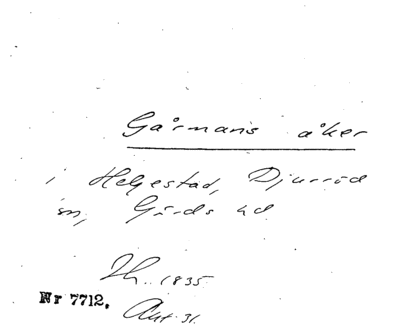 Gårmans åker
i Helgestad, Djurröd
sn, Gärds hd
Lh. 1835
Nr 7712.
Akt 31.